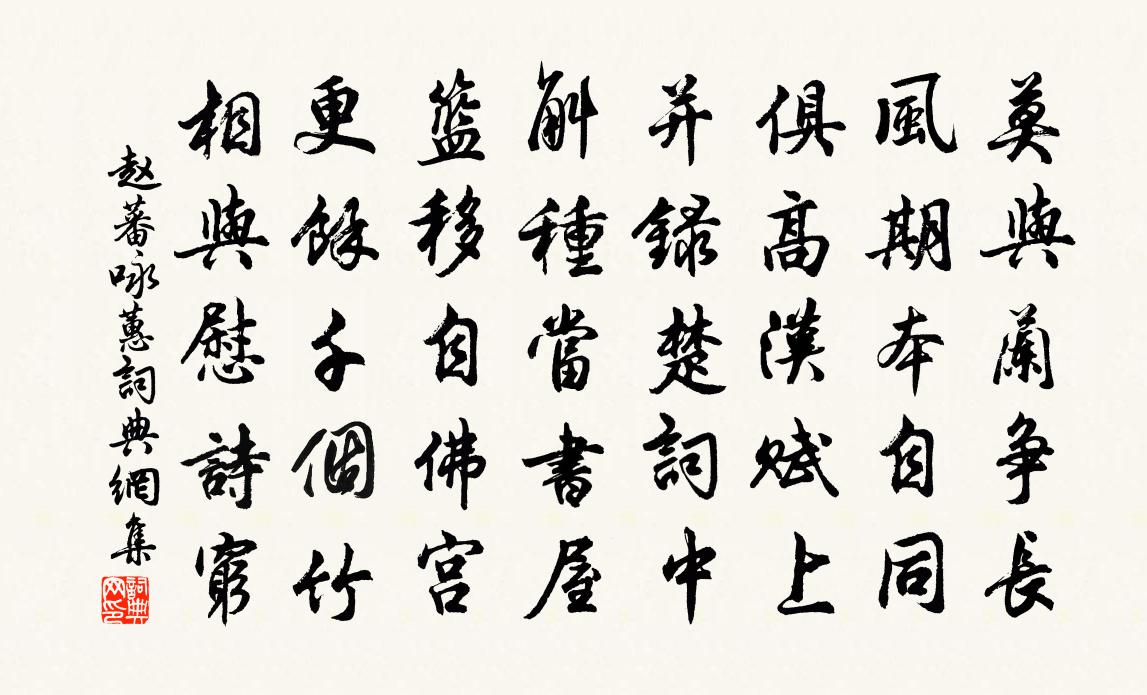 莫與蘭争長
風期本自同
俱高漢賦上
并録楚詞中
斛種當書屋
籃移自佛宫
更餘千個竹
相與慰詩窮
赵蕃咏蕙詞典網集
詞典网印